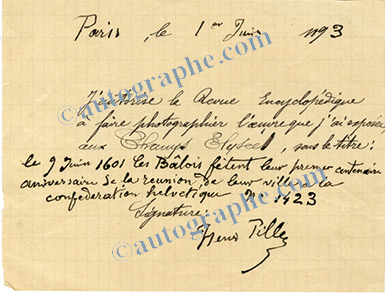 Paris, le 1er Juin 1893
J'autorise la Revue Encyclopédique
à faire photographier l'œuvre que j'ai exposée
aux Champs Elysées, sous le titre:
le 9 Juin 1601 les Bâlois fêtent leur premier centenaire
anniversaire de la réunion de leur ville à la
confédération helvétique No 1423
Signature:
Henri Pille
©autographe.com
©autographe.com
©autographe.com